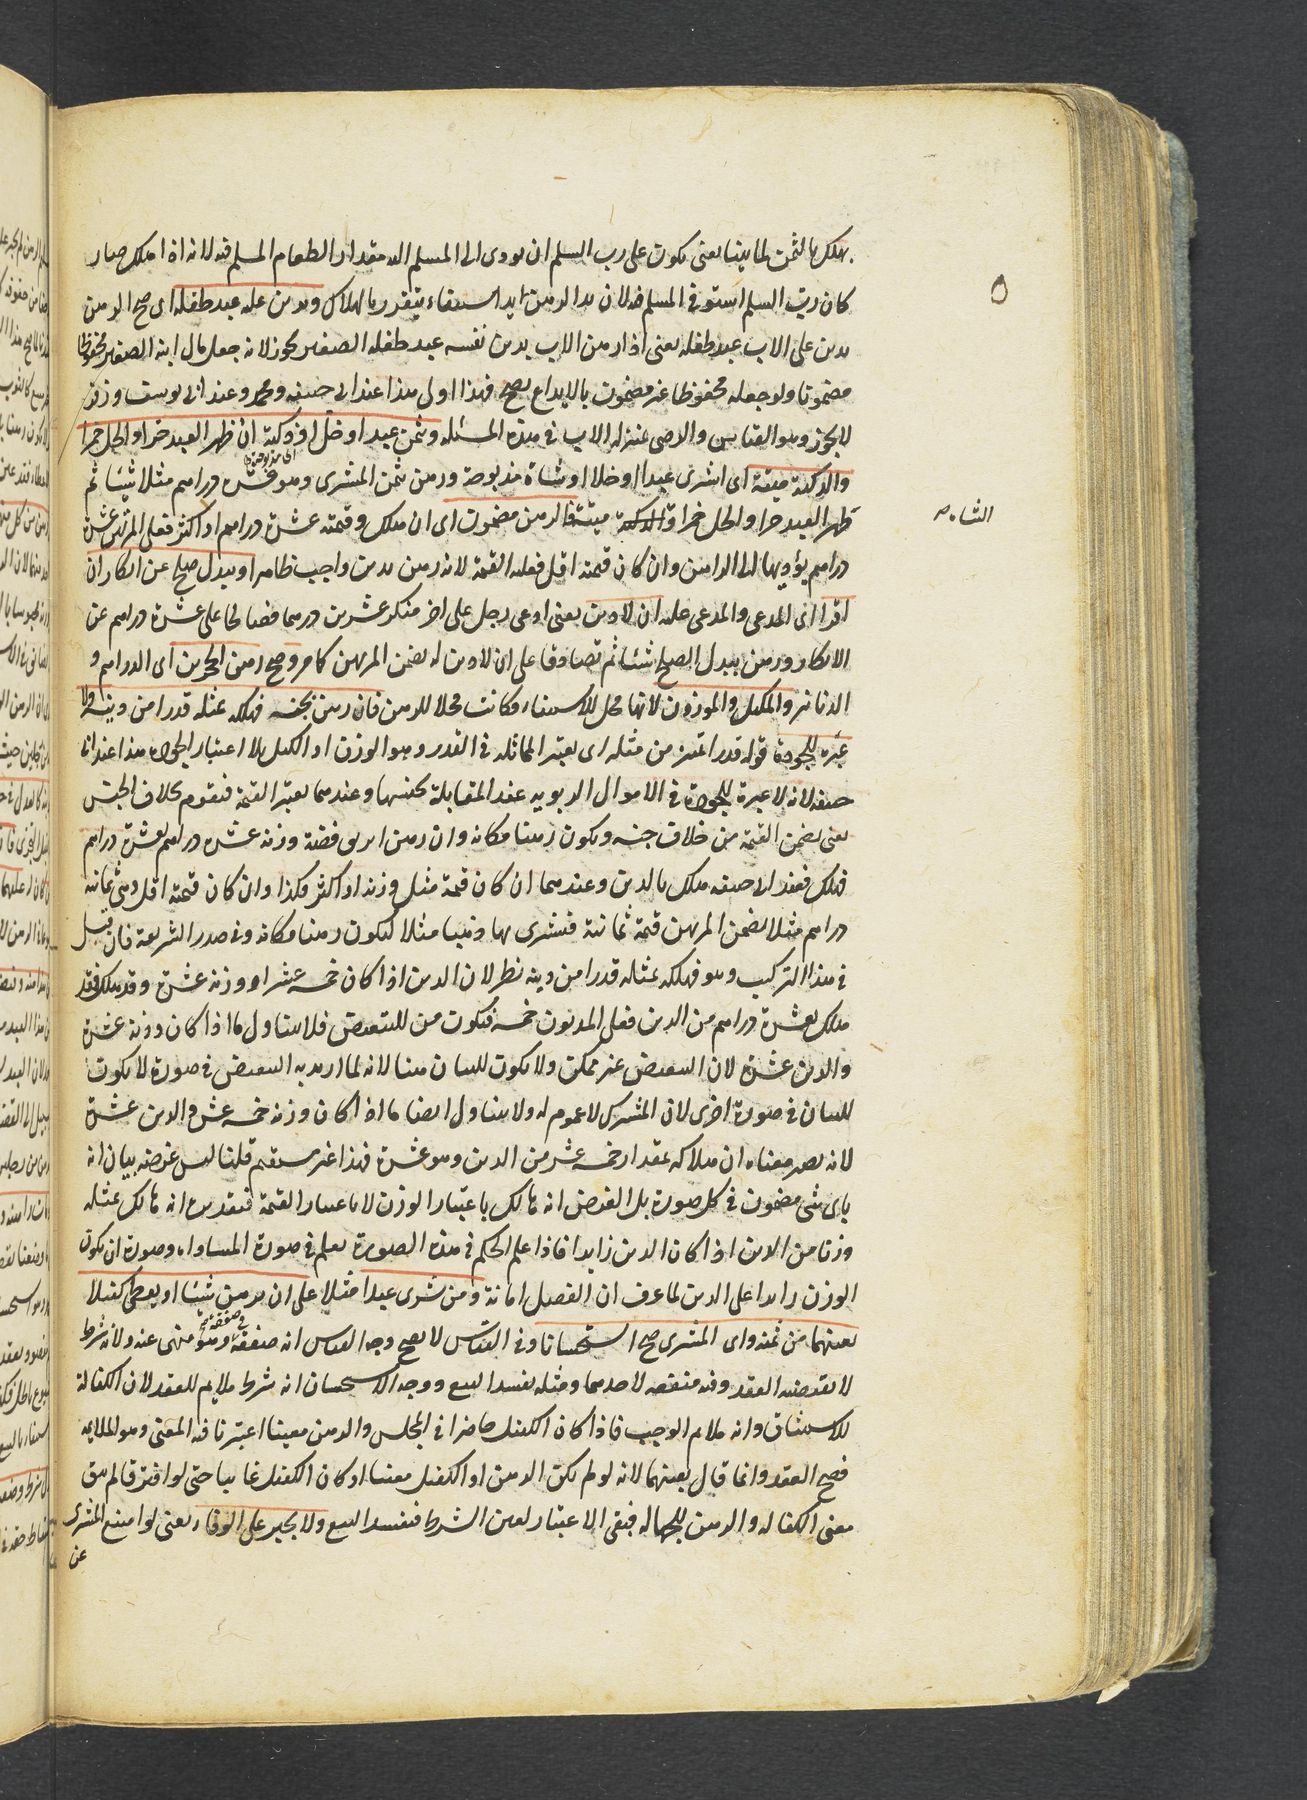 يهلك بالثمن لما بينا يعنى يكون على رب السلم ان يودى الى المسلم اليه مقدار الطعام المسلم فيه لانه اذا هلك صار
كان رب السلم استوفى المسلم فيه لان يد الرهن يد استيفاء يتقرر بالهلاك وبدين عليه عبد طفله اى صح الرهن
بدين على الاب عبد طفله يعنى اذا رهن الاب بدين نفسه عبد طفله الصغير يجوز لانه جعل مال ابنه الصغير محفوظا
مضمونا ولو جعله محفوظا غير مضمون بالايداع يصح فهذا اولى هذا عند ابى حنيفه ومحمد وعند ابى يوسف وزفر
لا يجوز وهو القياس والوصى بمنزله الاب فى هذه المسئله وثمن عبد او خل او ذكية ان ظهر العبد حرا والخل خمرا
والذكية ميتة اى اشترى عبدا او خلا او شاة مذبوحة ورهن بثمن المشترى وهو عشرة دراهم مثلا شيئا ثم
ظهر العبد حرا والخل خمرا والشاة ميتة فالرهن مضمون اى ان هلك وقيمته عشرة دراهم او اكثر فعلى المرتهن عشرة
الشاة صح
دراهم يؤديها الى الراهن وان كان قيمته اقل فعليه القيمة لانه رهن بدين واجب ظاهرا وببدل صلح عن انكار ان
اقرا اى المدعى والمدعى عليه ان لا دين يعنى ادعى رجل على اخر منكر عشرين درهما فصالحا على عشرة دراهم عن
الانكار ورهن ببدل الصلح شيئا ثم تصادقا على ان لا دين له يضمن المرتهن كما مر وصح رهن الحجرين اى الدراهم و
الدنانير والمكيل والموزون لانها محل للاستيفاء فكانت محلا للرهن فان رهن بجنسه فهلكه بمثله قدرا من دينه ولا
عبرة للجودة قوله قدرا تميز من مثله اى يعتبر المماثله فى القدر وهو الوزن او الكيل بلا اعتبار الجودة هذا عند ابى
حنيفه لانه لا عبرة للجودة فى الاموال الربويه عند المقابلة بجنسها وعندهما يعتبر القيمة فتقوم بخلاف الجنس
يعنى يضمن القيمة من خلاف جنسه ويكون رهنا مكانه وان رهن ابريق فضة وزنه عشرة دراهم بعشرة دراهم
فهلك فعند ابى حنيفه هلك بالدين وعندهما ان كان قيمة مثل وزنه او اكثر فكذا وان كان قيمته اقل وهى ثمانيه
دراهم مثلا يضمن المرتهن قيمة ثمانية فيشترى بها ذهبا مثلا ليكون رهنا مكانه وفى صدر الشريعة فان قيل
فى هذا التركيب وهو فهلكه بمثله قدرا من دينه نظر لان الدين اذا كان خمسة عشر او وزنه عشرة وقد هلك فقد
هلك بعشرة دراهم من الدين فعلى المديون خمسة فيكون من للتبعيض فلا يتناول ما اذا كان وزنه عشرة
والدين عشرة لان التبعيض غير ممكن ولا يكون للبيان هنا لانه لما اريد به التبعيض فى صورة لا يكون
للبيان فى صورة اخرى لان المشترك لا عموم له ولا يتناول ايضا ما اذا كان وزنه خمسه عشر والدين عشرة
لانه يصير معناه ان هلاكه بمقدار خمسه عشر من الدين وهو عشرة فهذا غير مستقيم قلنا ليس غرضه بيان انه
باى شى مضمون فى كل صورة بل الغرض انه هالك باعتبار الوزن لا باعتبار القيمة فنقدر انه هالك بمثله
وزنا من الدين اذا كان الدين زايدا فاذا علم الحكم فى هذه الصورة يعلم فى صورة المساواه وصورة ان يكون
الوزن زايدا على الدين لما عرف ان الفضل امانة ومن شرى عبدا مثلا على ان يرهن شيئا او يعطى كفيلا
بعينهما من ثمنه واى المشترى صح استحسانا وفى القياس لا يصح وجه القياس انه صفقة فى صفقة وهو منهى عنه ولانه شرط
لا يقتضيه العقد وفيه منفعه لاحدهما ومثله يفسد البيع ووجه الاستحسان انه شرط ملايم للعقد لان الكفالة
للاستيثاق وانه ملايم الوجوب فاذا كان الكفيل حاضرا فى المجلس والرهن معينا اعتبرنا فيه المعنى وهو الملايمه
فصح العقد وانما قال بعينهما لانه لو لم يكن الرهن او الكفيل معينا او كان الكفيل غايبا حتى لو افترقا لم يبق
معنى الكفاله والرهن للجهاله فبقى الاعتبار لعين الشرط فيفسد البيع ولا يجبر على الوفاء يعنى لو امتنع المشترى
عن